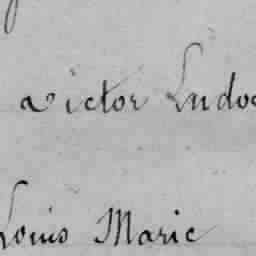 Victor Ludo
Louis Marie